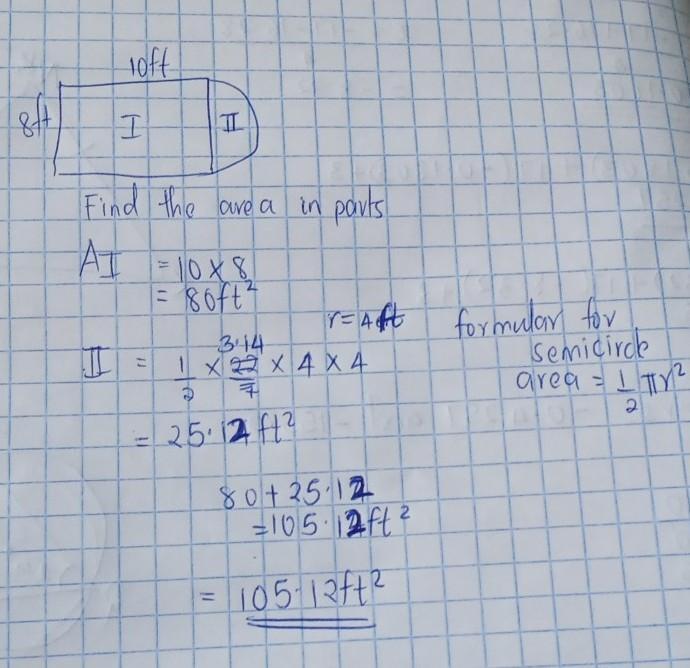 10ft
8ft I II
Find the area in parts
AI = 10 × 8
= 80ft²
r = 4ft
formular for
semicircle
area = 1/2 πr²
II = 1/2 × 3.14 × 4 × 4
22/7
= 25.12ft²
80 + 25.12
= 105.12ft²
= 105.12ft²